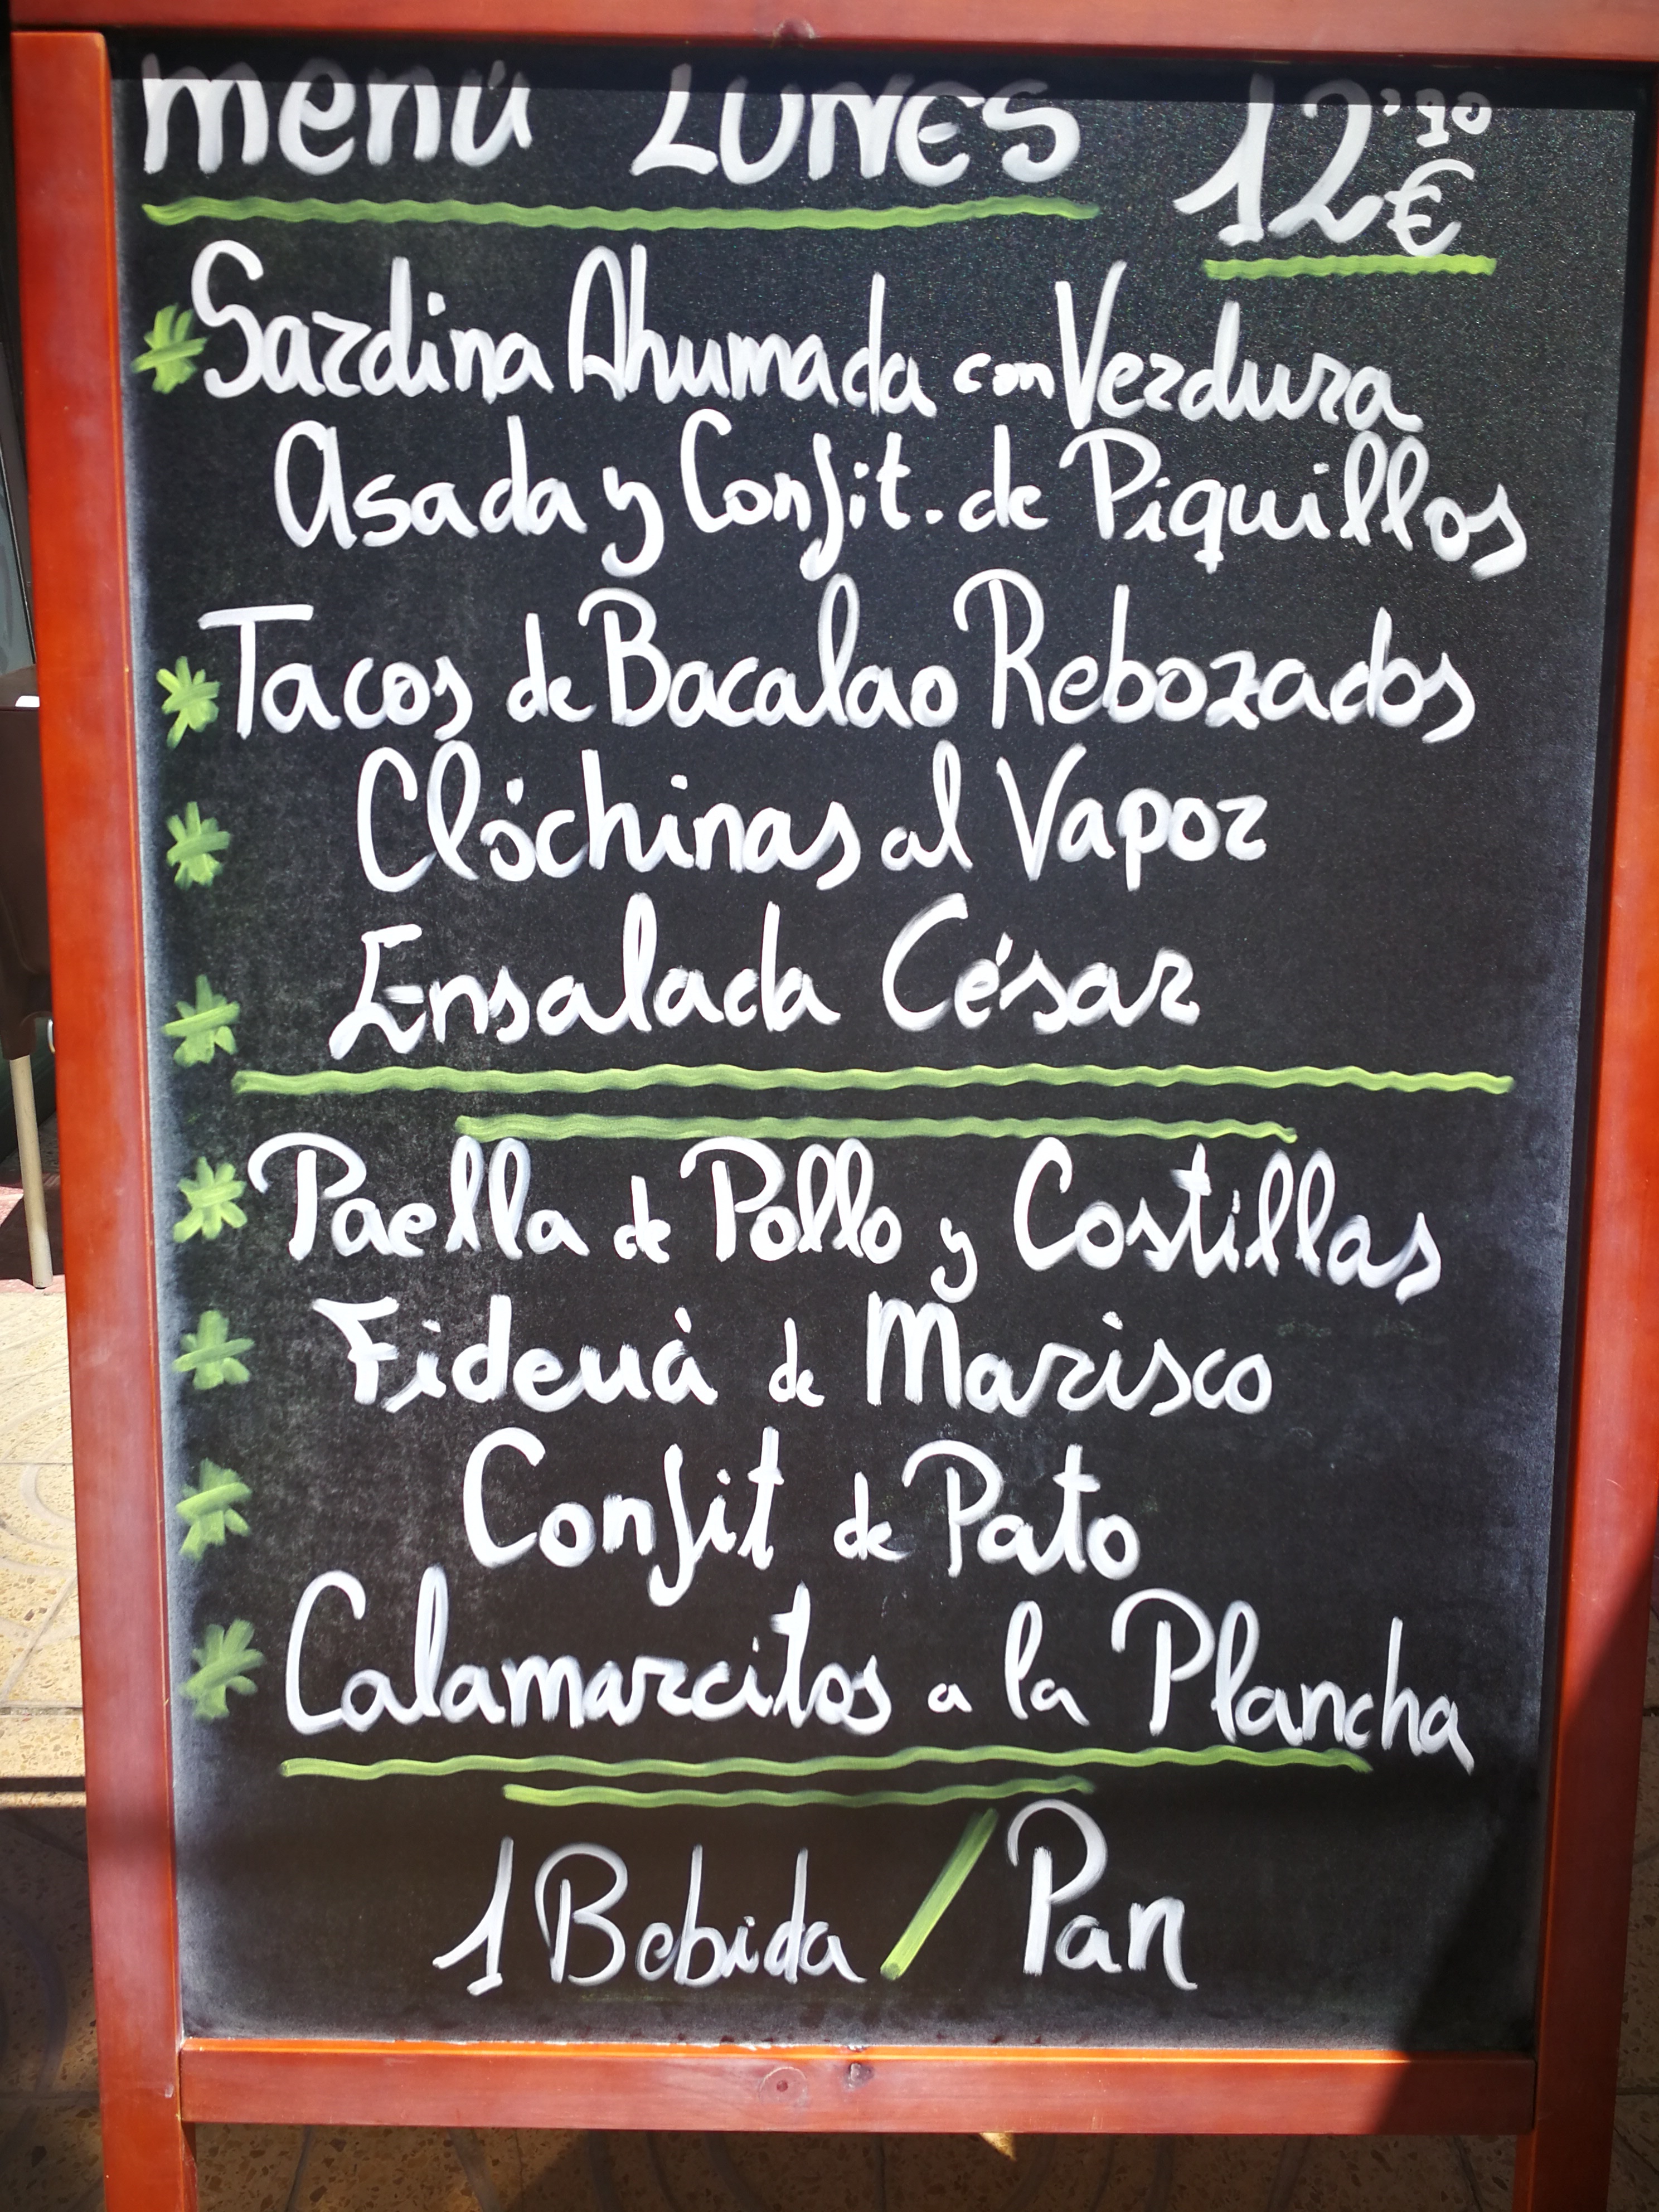 menú LUNES 12'90€
* Sardina Ahumada con Verdura
Asada y Confit. de Piquillos
* Tacos de Bacalao Rebozados
* Clóchinas al Vapor
* Ensalada César
* Paella de Pollo y Costillas
* Fideuà de Marisco
* Confit de Pato
* Calamarcitos a la Plancha
1 Bebida / Pan